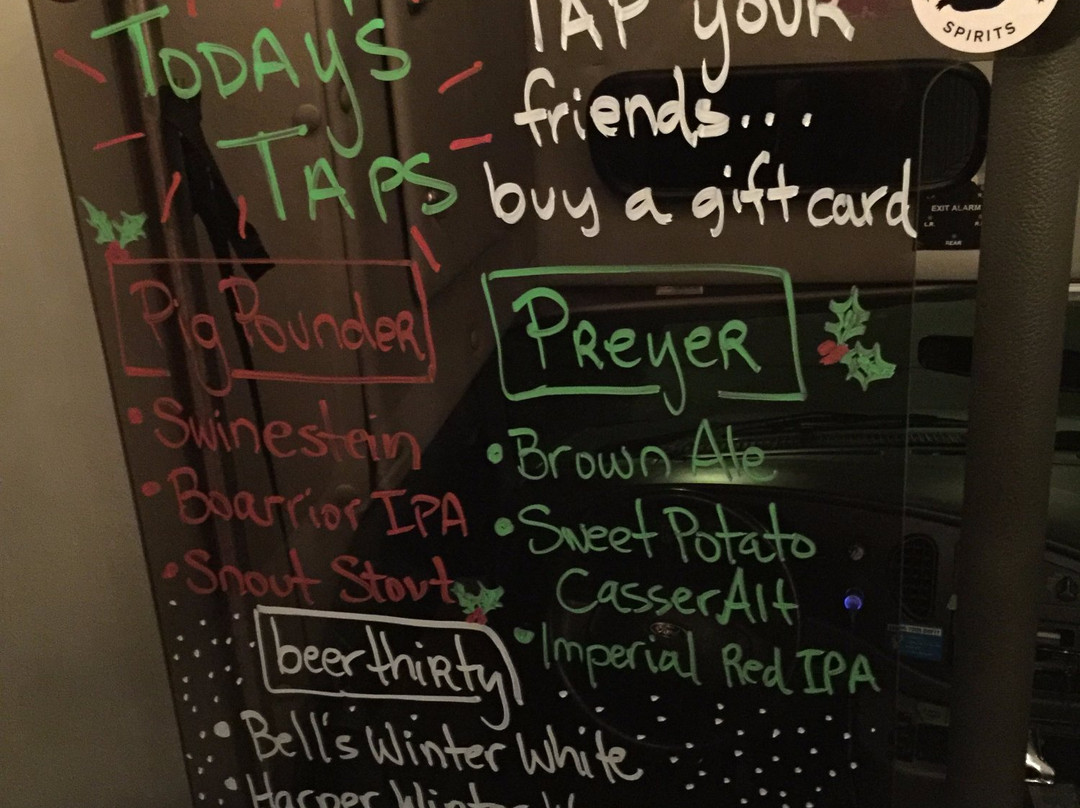 TODAy's
TAPS
TAP your
friends...
buy a gift card
SPIRITS
EXIT ALARM
REAR
Pig Pounder
• Swinestein
• Boarrior IPA
• Snout Stout
Preyer
• Brown Ale
• Sweet Potato
CasserAlt
• Imperial Red IPA
beerthirty
• Bell's Winter White
• Harper Winter